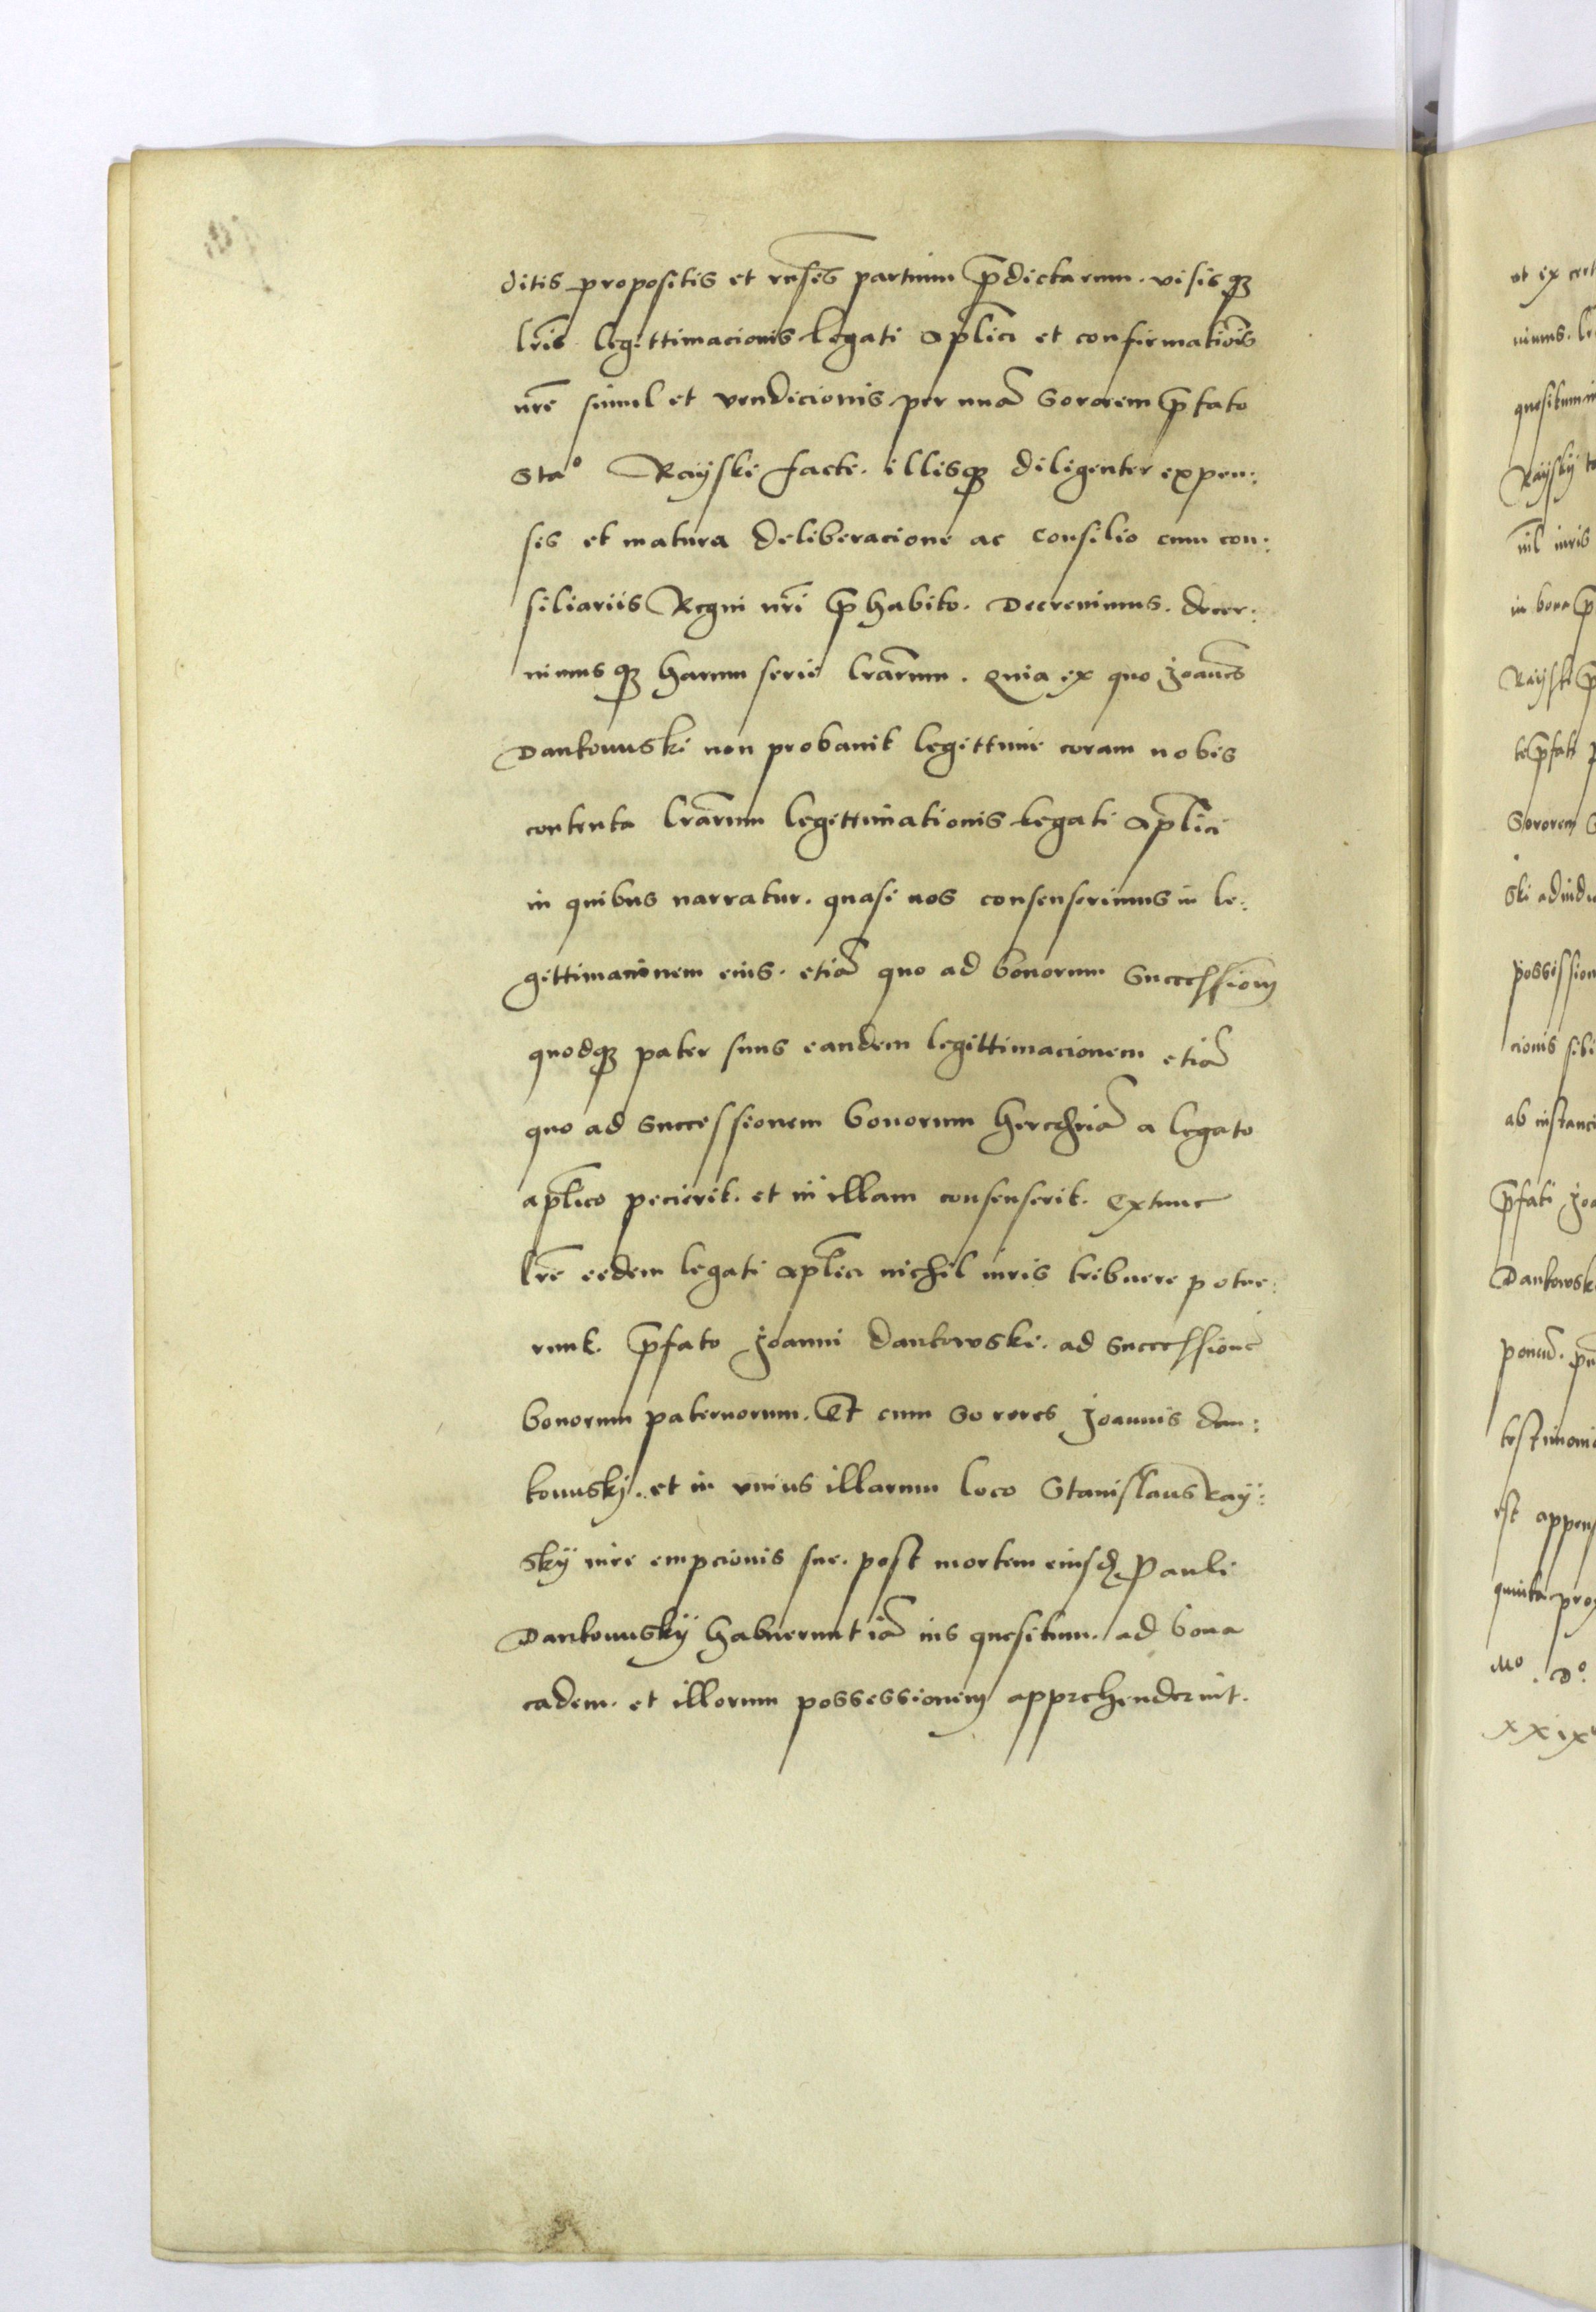 ditis propositis et rn̄sēs partium p̄dictarum. visisqꝫ
lr̄is legittimacionis legati ap̄lici et confirmatiōis
nr̄e simul et vendicionis per unā Sororem p̄fato
Staᵒ Raÿski facte. illisqꝫ diligenter expen:
sis et matura deliberacione ac consilio cum con:
siliariis Regni nr̄i p̄habito. Decreuimus. decer:
nimusqꝫ harum serie lr̄arum. Quia ex quo Joan̄es
Dankouuski non probauit legittime coram nobis
contenta lr̄arum legittimationis legati ap̄lici
in quibus narratur. quasi nos consenserimus in le:
gittimacionem eius. etiā quo ad bonorum Successionem
quodqꝫ pater suus eandem legittimacionem etiā
quo ad Successionem bonorum a legato
ap̄lico pecierit. et in illam consenserit. Extunc
lr̄e eedem legati ap̄lici nichil iuris tribuere potue:
runt. p̄fato Joanni Dankowski. ad Successionē
bonorum paternorum. Et cum Sorores Joannis dan:
kouuskj. et in vnius illarum loco Stanislaus Raÿ:
Skÿ iure empcionis sue. post mortem eiusdꝫ Pauli
Dankouuskÿ habuerunt iā ius quesitum. ad bona
eadem. et illorum possessionem apprehenderint.
ut ex
quesitum
Raÿskÿ
nil iuris
in bona p̄
Raÿski p̄
p̄fati
Sororem
Ski
possession
cionis sibi
ab instanci
p̄fati Joa
Dankowsk
testimoni
est appens
quinta prox
Mᵒ. Dᵒ.
xxix